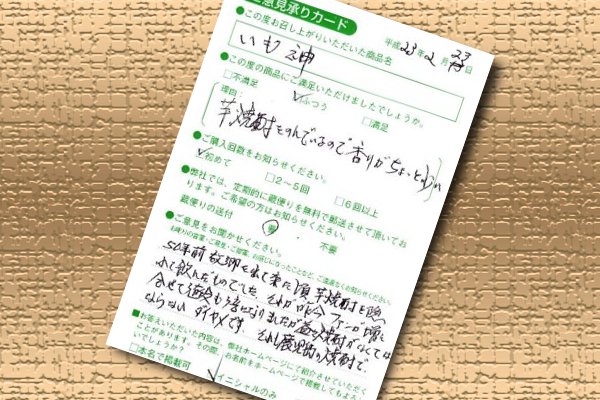 ご意見承りカード
平成23年2月23日
●この度お召し上がりいただいた商品名
いも神
●この度の商品にご満足いただけましたでしょうか。
□不満足 ふつう □満足
理由:
芋焼酎をのんでいるので香りがちょっと
●ご購入回数をお知らせください。
初めて □2〜5回 □6回以上
●弊社では、定期的に蔵便りを無料で郵送させて頂いてお
ります。ご希望の方はお知らせください。
蔵便りの送付 要 不要
●ご意見をお聞かせください。
50年前故郷を出て来た頃芋焼酎を隠
れて飲んだものでした それが今ファンが増え
合せて種類も多くなりましたが 焼酎がなくては
ならない ダイヤメです。それも鹿児島の焼酎で
■お答えいただいた内容は、弊社ホームページにて紹介させていただく
ことがあります。その際、お名前をホームページで掲載してもよろし
いでしょうか?
□本名で掲載可 イニシャルのみ